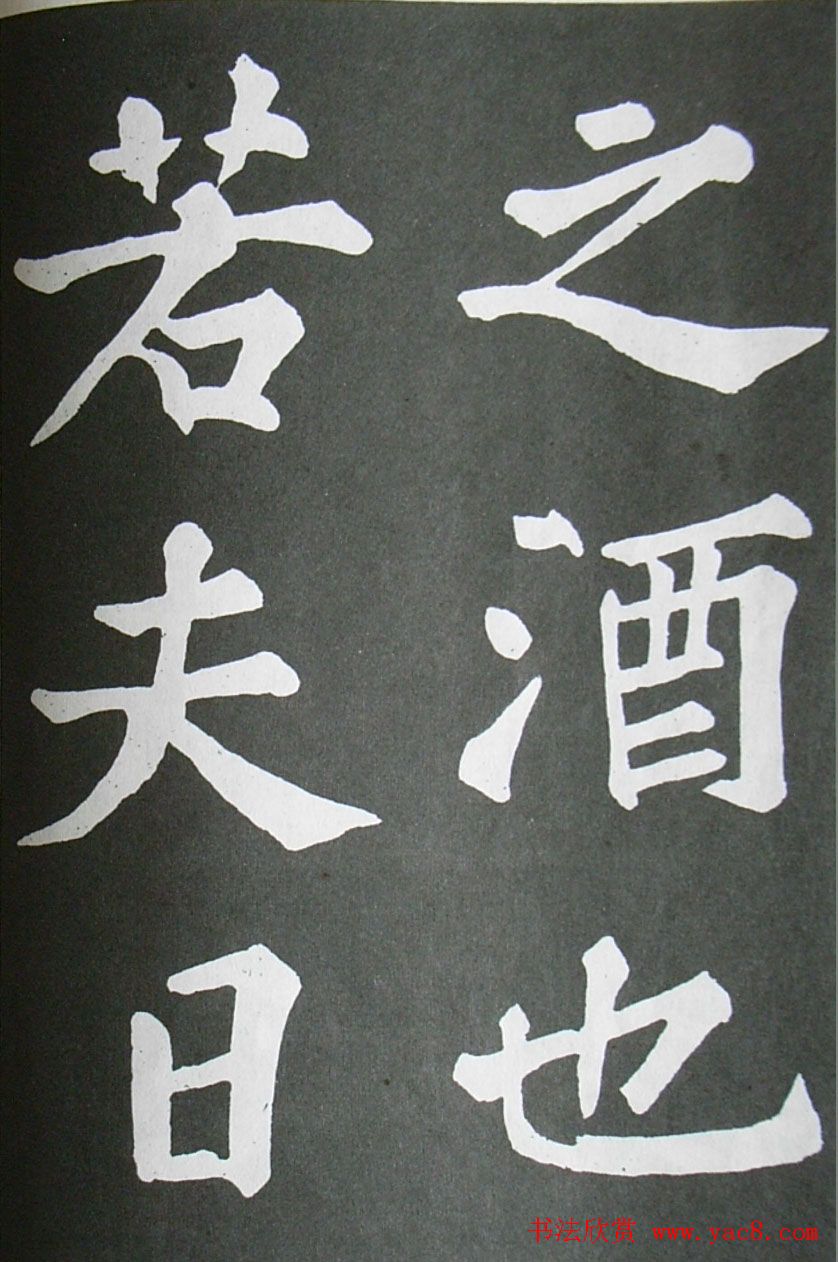 之酒也
若夫日
书法欣赏 www.yac8.com